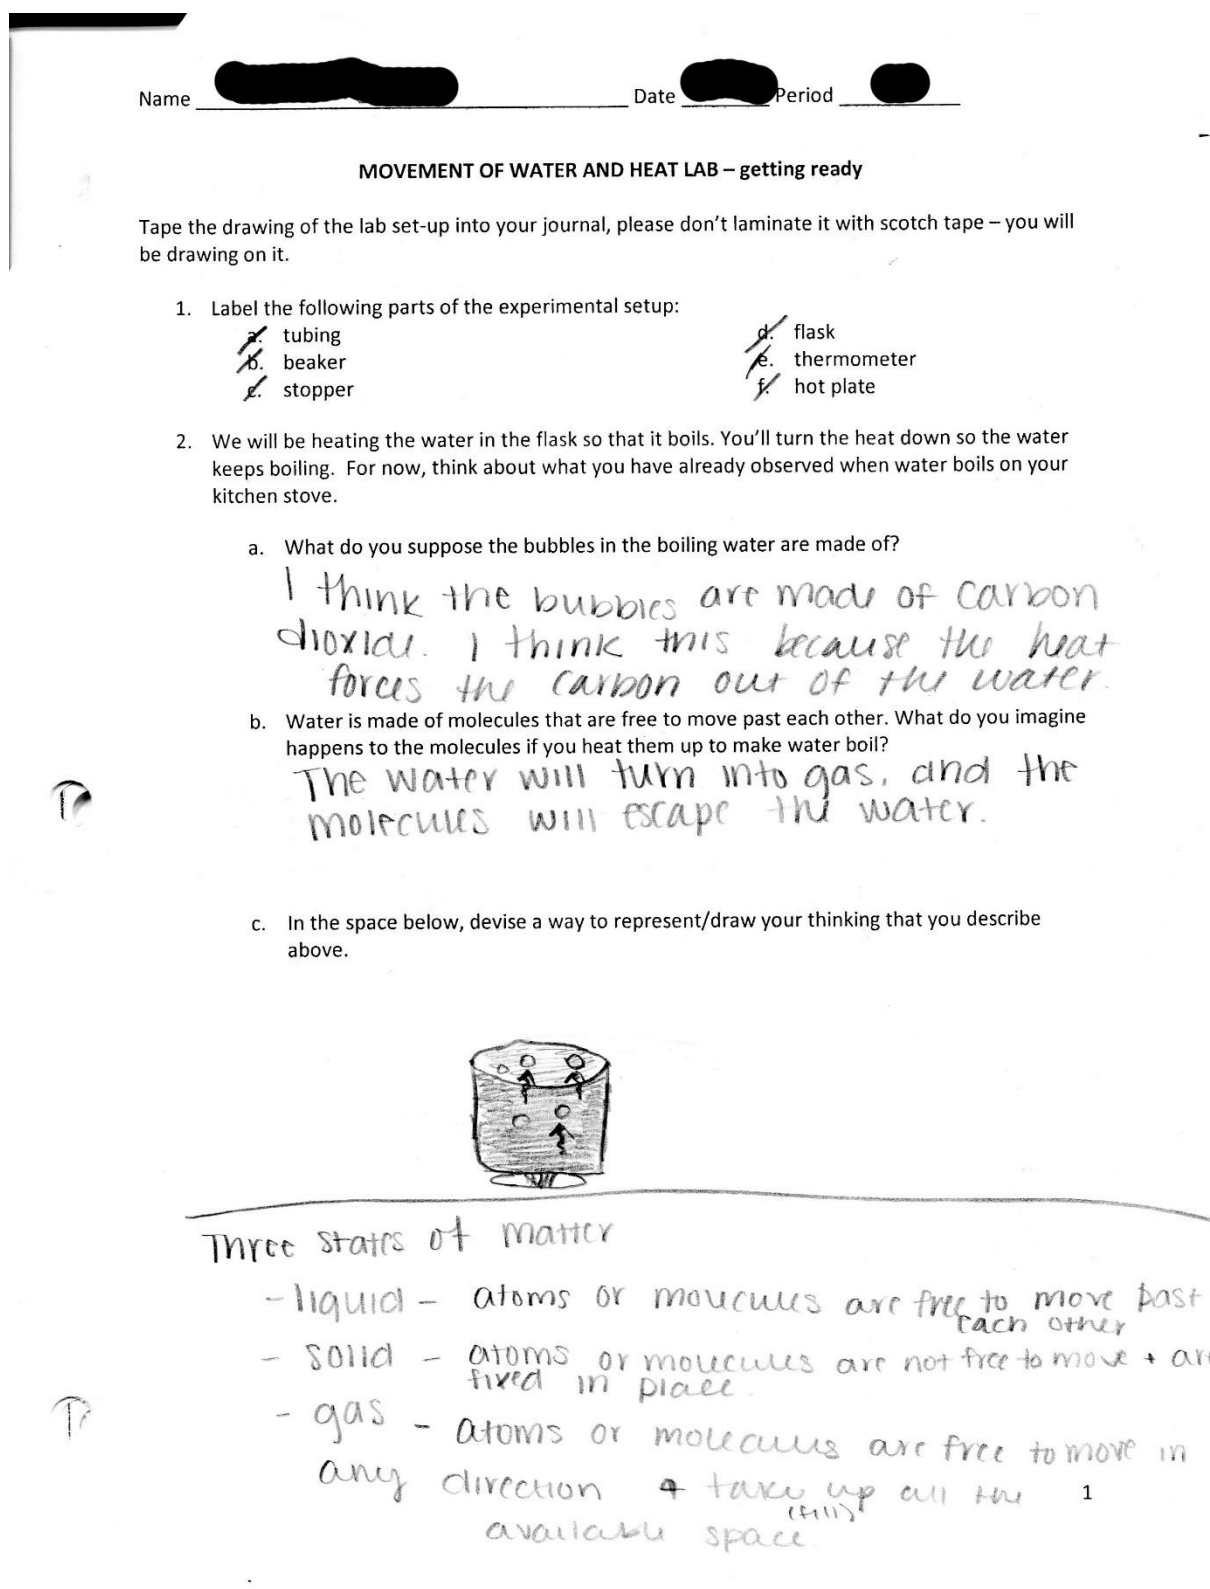 Name Date Period
MOVEMENT OF WATER AND HEAT LAB – getting ready
Tape the drawing of the lab set-up into your journal, please don't laminate it with scotch tape – you will
be drawing on it.
1. Label the following parts of the experimental setup:
a. tubing
b. beaker
c. stopper
d. flask
e. thermometer
f. hot plate
2. We will be heating the water in the flask so that it boils. You'll turn the heat down so the water
keeps boiling. For now, think about what you have already observed when water boils on your
kitchen stove.
a. What do you suppose the bubbles in the boiling water are made of?
I think the bubbles are made of carbon
dioxide. I think this because the heat
forces the carbon out of the water.
b. Water is made of molecules that are free to move past each other. What do you imagine
happens to the molecules if you heat them up to make water boil?
The water will turn into gas, and the
molecules will escape the water.
c. In the space below, devise a way to represent/draw your thinking that you describe
above.
Three states of matter
- liquid - atoms or molecules are free to move past
each other
- solid - atoms or molecules are not free to move + ar
fixed in place
- gas - atoms or molecules are free to move in
any direction + take up all the
(fill)
available space.
1